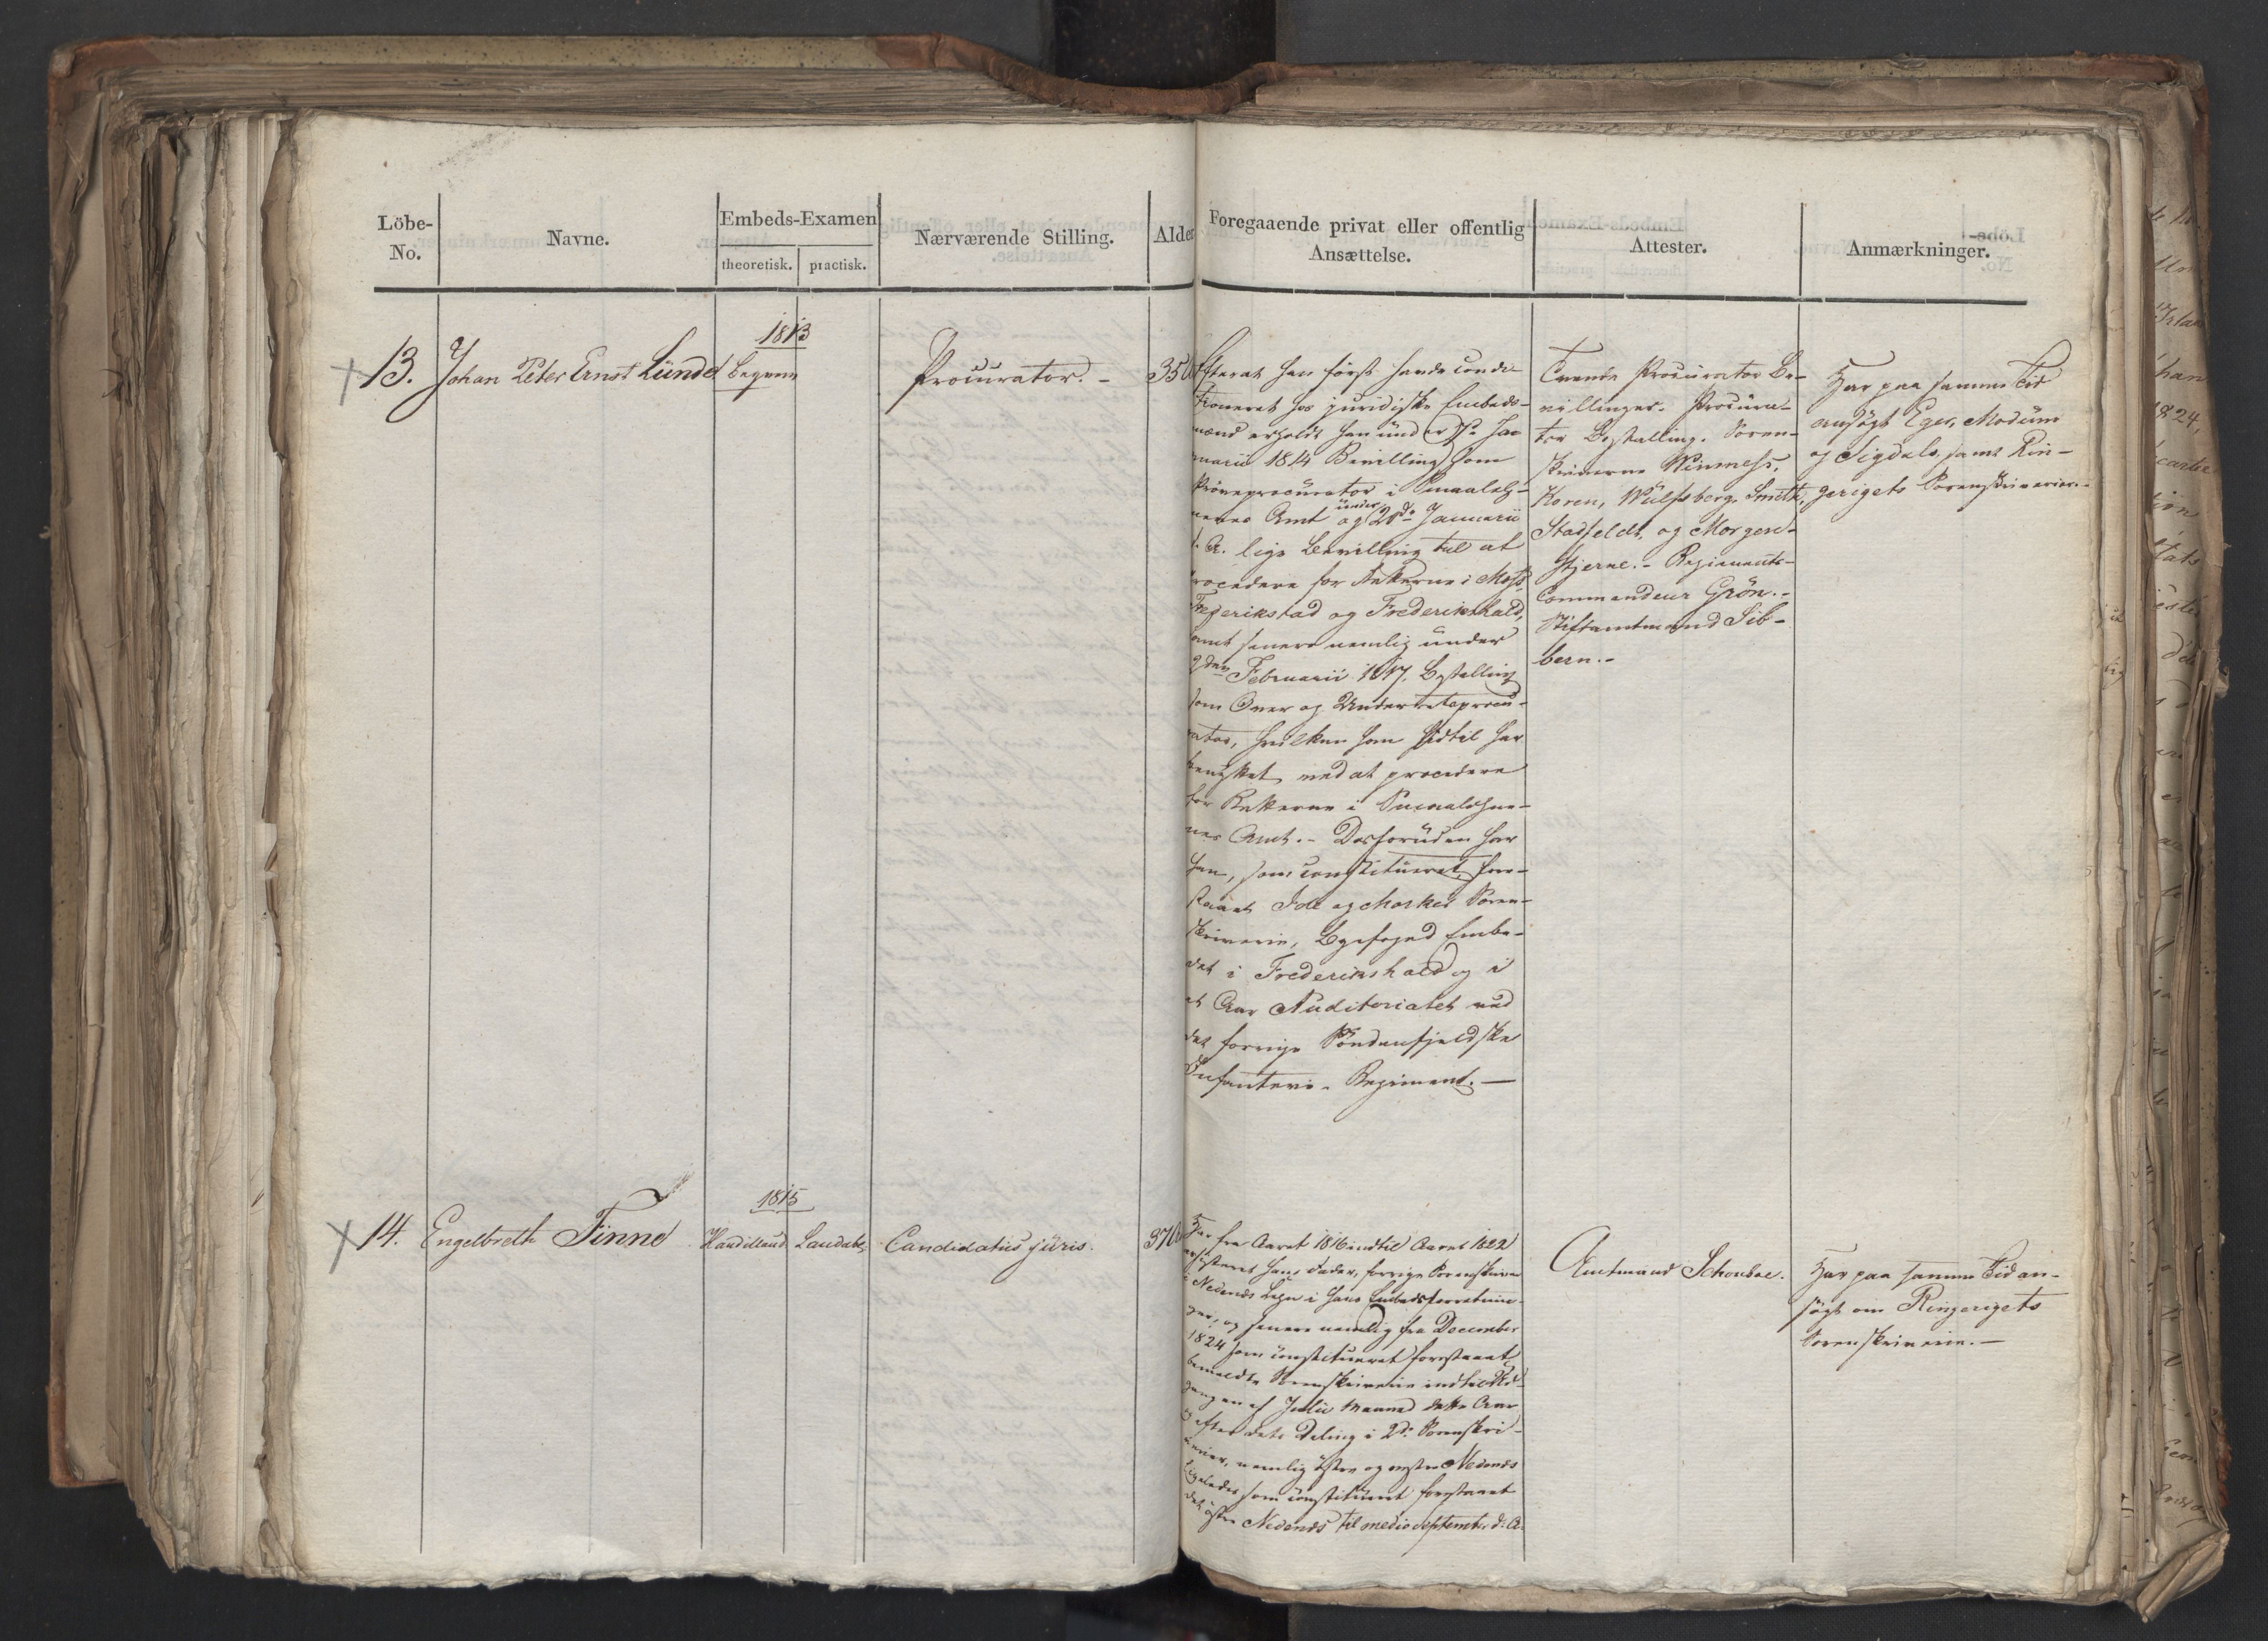 Löbe-
No.
Navne.
Embeds-Examen
theoretisk.
practisk.
Nærværende Stilling.
Alder
Foregaaende privat eller offentlig
Ansættelse.
Attester.
Anmærkninger.
1813
13. Johan Peter Ernst Lünd
begvem
Procurator. -
35 Aar
Efterat han först havde condi-
tioneret hos juridiske Embeds-
mænd erholdt han under 7de Ja-
nuarii 1814 Bevilling som
Prøveprocurator i Smaaleh-
nenes Amt og under 28de Januarii
s. A. lige Bevilling til at
procedere for Retterne i Moss
Frederikstad og Frederikshald,
samt senere nemlig under
9den Februarii 1817. Bestalling
som Over og Underretsprocu-
rator, hvilken han hidtil har
benyttet ved at procedere
for Retterne i Smaalehne-
nes Amt. - Desforuden har
han, som constitueret, fore-
staaet Idde og Markers Soren-
skriverie, Byefoged Embe-
det i Frederikshald og i
et Aar Auditoriatet ved
det forrige Söndenfjeldske
Infanterie-Regiment. —
Tvende Procurator Be-
villinger. Procura-
tor Bestalling. Soren-
skriverne
Koren, Wülfsberg, Smith,
Stadfeldt, og Morgen-
stjerne. - Regiments-
Commandeur Grön. -
Stiftamtmand Sib-
bern. -
Har paa samme Tid
ansögt Eger, Modum
og Sigdals, samt Rin-
gerigets Sorenskriverier. -
1815
14. Engelbreth Finne
Haud illaud.
Laudab.
Candidatus juris.
37 Aar
Har fra Aaret 1816 indtil Aaret 1822
assisteret hans Fader, forrige Sorenskriver
i Nedenes Lehn i hans Embedsforretnin-
ger, og senere nemlig fra December
1824 som constitueret forestaaet
bemeldte Sorenskriverie indtil Ud-
gangen af Julii Maaned dette Aar
og efter dets Deling i 2de Sorenskri-
verier, nemlig østre og vestre Nedenes
ligeledes som constitueret forestaaet
det østre Nedenes til medio Septembr. d: A.
Amtmand Schouboe.
Har paa samme Tid an-
sögt om Ringerigets
Sorenskriverie. —